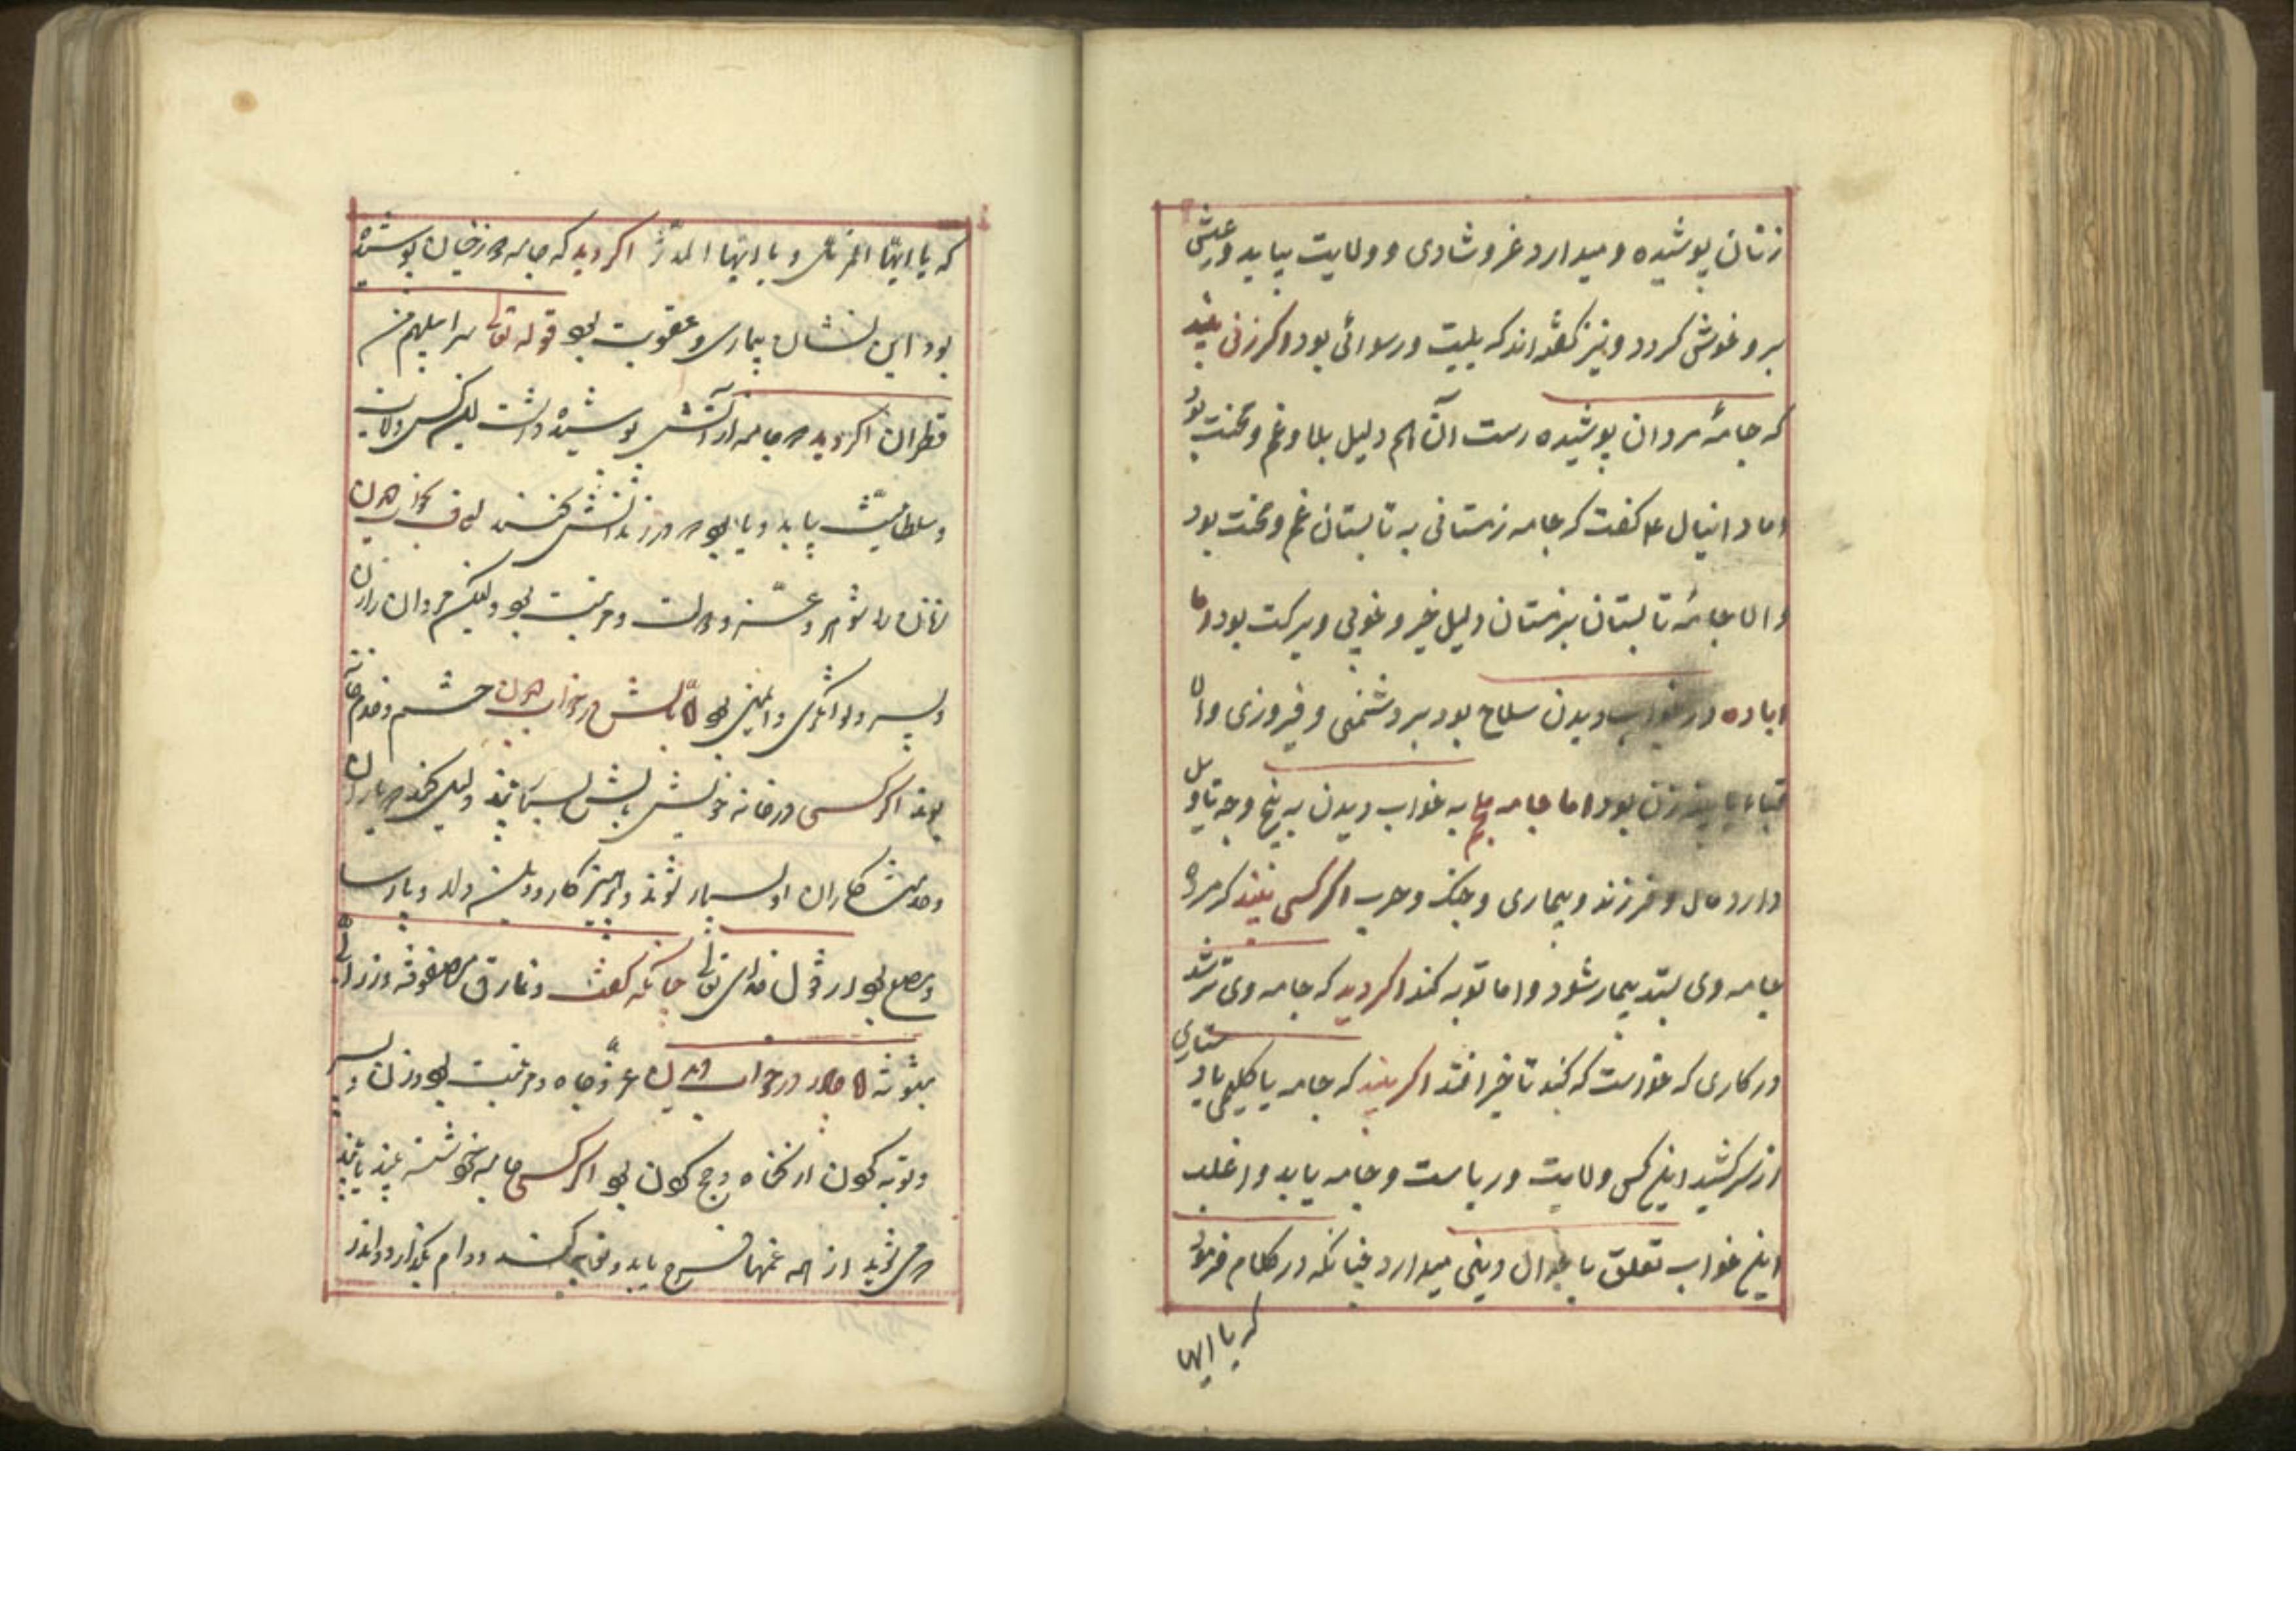 زنان پوشیده و میدارد عز و شادی و ولایت بیابد و عیش
برو خوش کردد و نیز کفته‌اند که بلیت و رسوائی بود و اکر زنی بیند
که جامهٔ مردان پوشیده است آن هم دلیل بلا و غم و محنت بود
اما دانیال ع کفت که جامه زمستانی به تابستان غم و محنت بود
و اما جامهٔ تابستان بزمستان دلیل خیر و خوبی و برکت بود و اما
لباده در خواب دیدن سلاح بود بر دشمنی و فیروزی و اما
قباء زن بود اما جامه به خواب دیدن به پنج وجه تاویل
دارد مال و فرزند و بیماری و جنک و حرب اکر کسی بیند که مرده
جامه وی ستد بیمار شود و اما توبه کند اکر دید که جامه وی تر شد
در کاری که خواست که کند تاخیر افتد اکر بیند که جامه یا کلیمی یا دستاری
از سر کشید اینکس ولایت و ریاست و جامه یابد و اغلب
اینخواب تعلق با حوال دینی میدارد چنانکه در کلام فرمود
که یا ایها
که یا ایها المزمل و یا ایها المدثر اکر دید که جامه پوشیده
بود این نشان بیماری و عقوبت بود قوله تعالی سرابیلهم من
قطران اکر دید که جامه از آتش پوشیده داشت اینکس ولایت
و سلطانیت یابد و یا بود که در کنند
زنان را شوهر و عز و دولت و مرتبت بود ولیکن مردان را زن
و پسر و توانکری و ایمنی بود اما بالش در خواب دیدن حشم و خدم خانه
بوند اکر کسی در خانه خویش بالش بسیار بیند دلیل کند که یاران
و خدمتکاران او بسیار شوند و پرهیزکار و و پارسا
و مصلح بود از قول خدای تعالی چنانکه کفت و نمارق مصفوفة و زرابی
مبثوثة اما چادر در خواب دیدن عز و جاه و مرتبت بود و زن و پسر
و توبه کردن از کناه و حج کردن بود اکر کسی جامه خود شسته بیند یا بیند
که می‌شوید از همه غمها فرج یابد و توبه کند و وام بکذارد و اندر